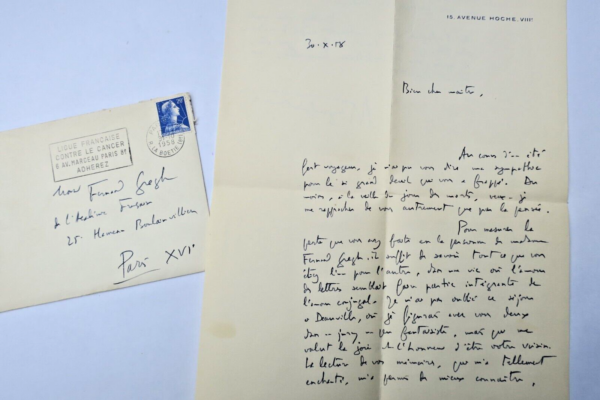 LIGUE FRANÇAISE
CONTRE LE CANCER
6 AV. MARCEAU PARIS 8E
ADHEREZ
1958
R. LA BOETIE
Fernand Gregh
de l'Académie Française
25 Hameau Boulainvilliers
Paris XVIe
15, AVENUE HOCHE. VIIIe
30.X.58
Bien cher maître,
Au cours d'un été
fort voyageur, je n'ai pu vous dire ma sympathie
pour le si grand deuil qui vous a frappé. Du
moins, à la veille du jour des morts, veux-je
me rapprocher de vous autrement que par la pensée.
Pour mesurer la
perte que vous avez faite en la personne de madame
Fernand Gregh, il suffit de savoir tout ce que vous
étiez l'un pour l'autre, dans une vie où l'amour
des lettres semblait faire partie intégrante de
l'amour conjugal. Je n'ai pas oublié ce séjour
à Deauville, où je figurais avec vous deux
dans un jury un peu fantaisiste, mais qui me
valut la joie et l'honneur d'être votre voisin.
La lecture de vos mémoires, qui m'a tellement
enchanté, m'a permis de mieux connaître,